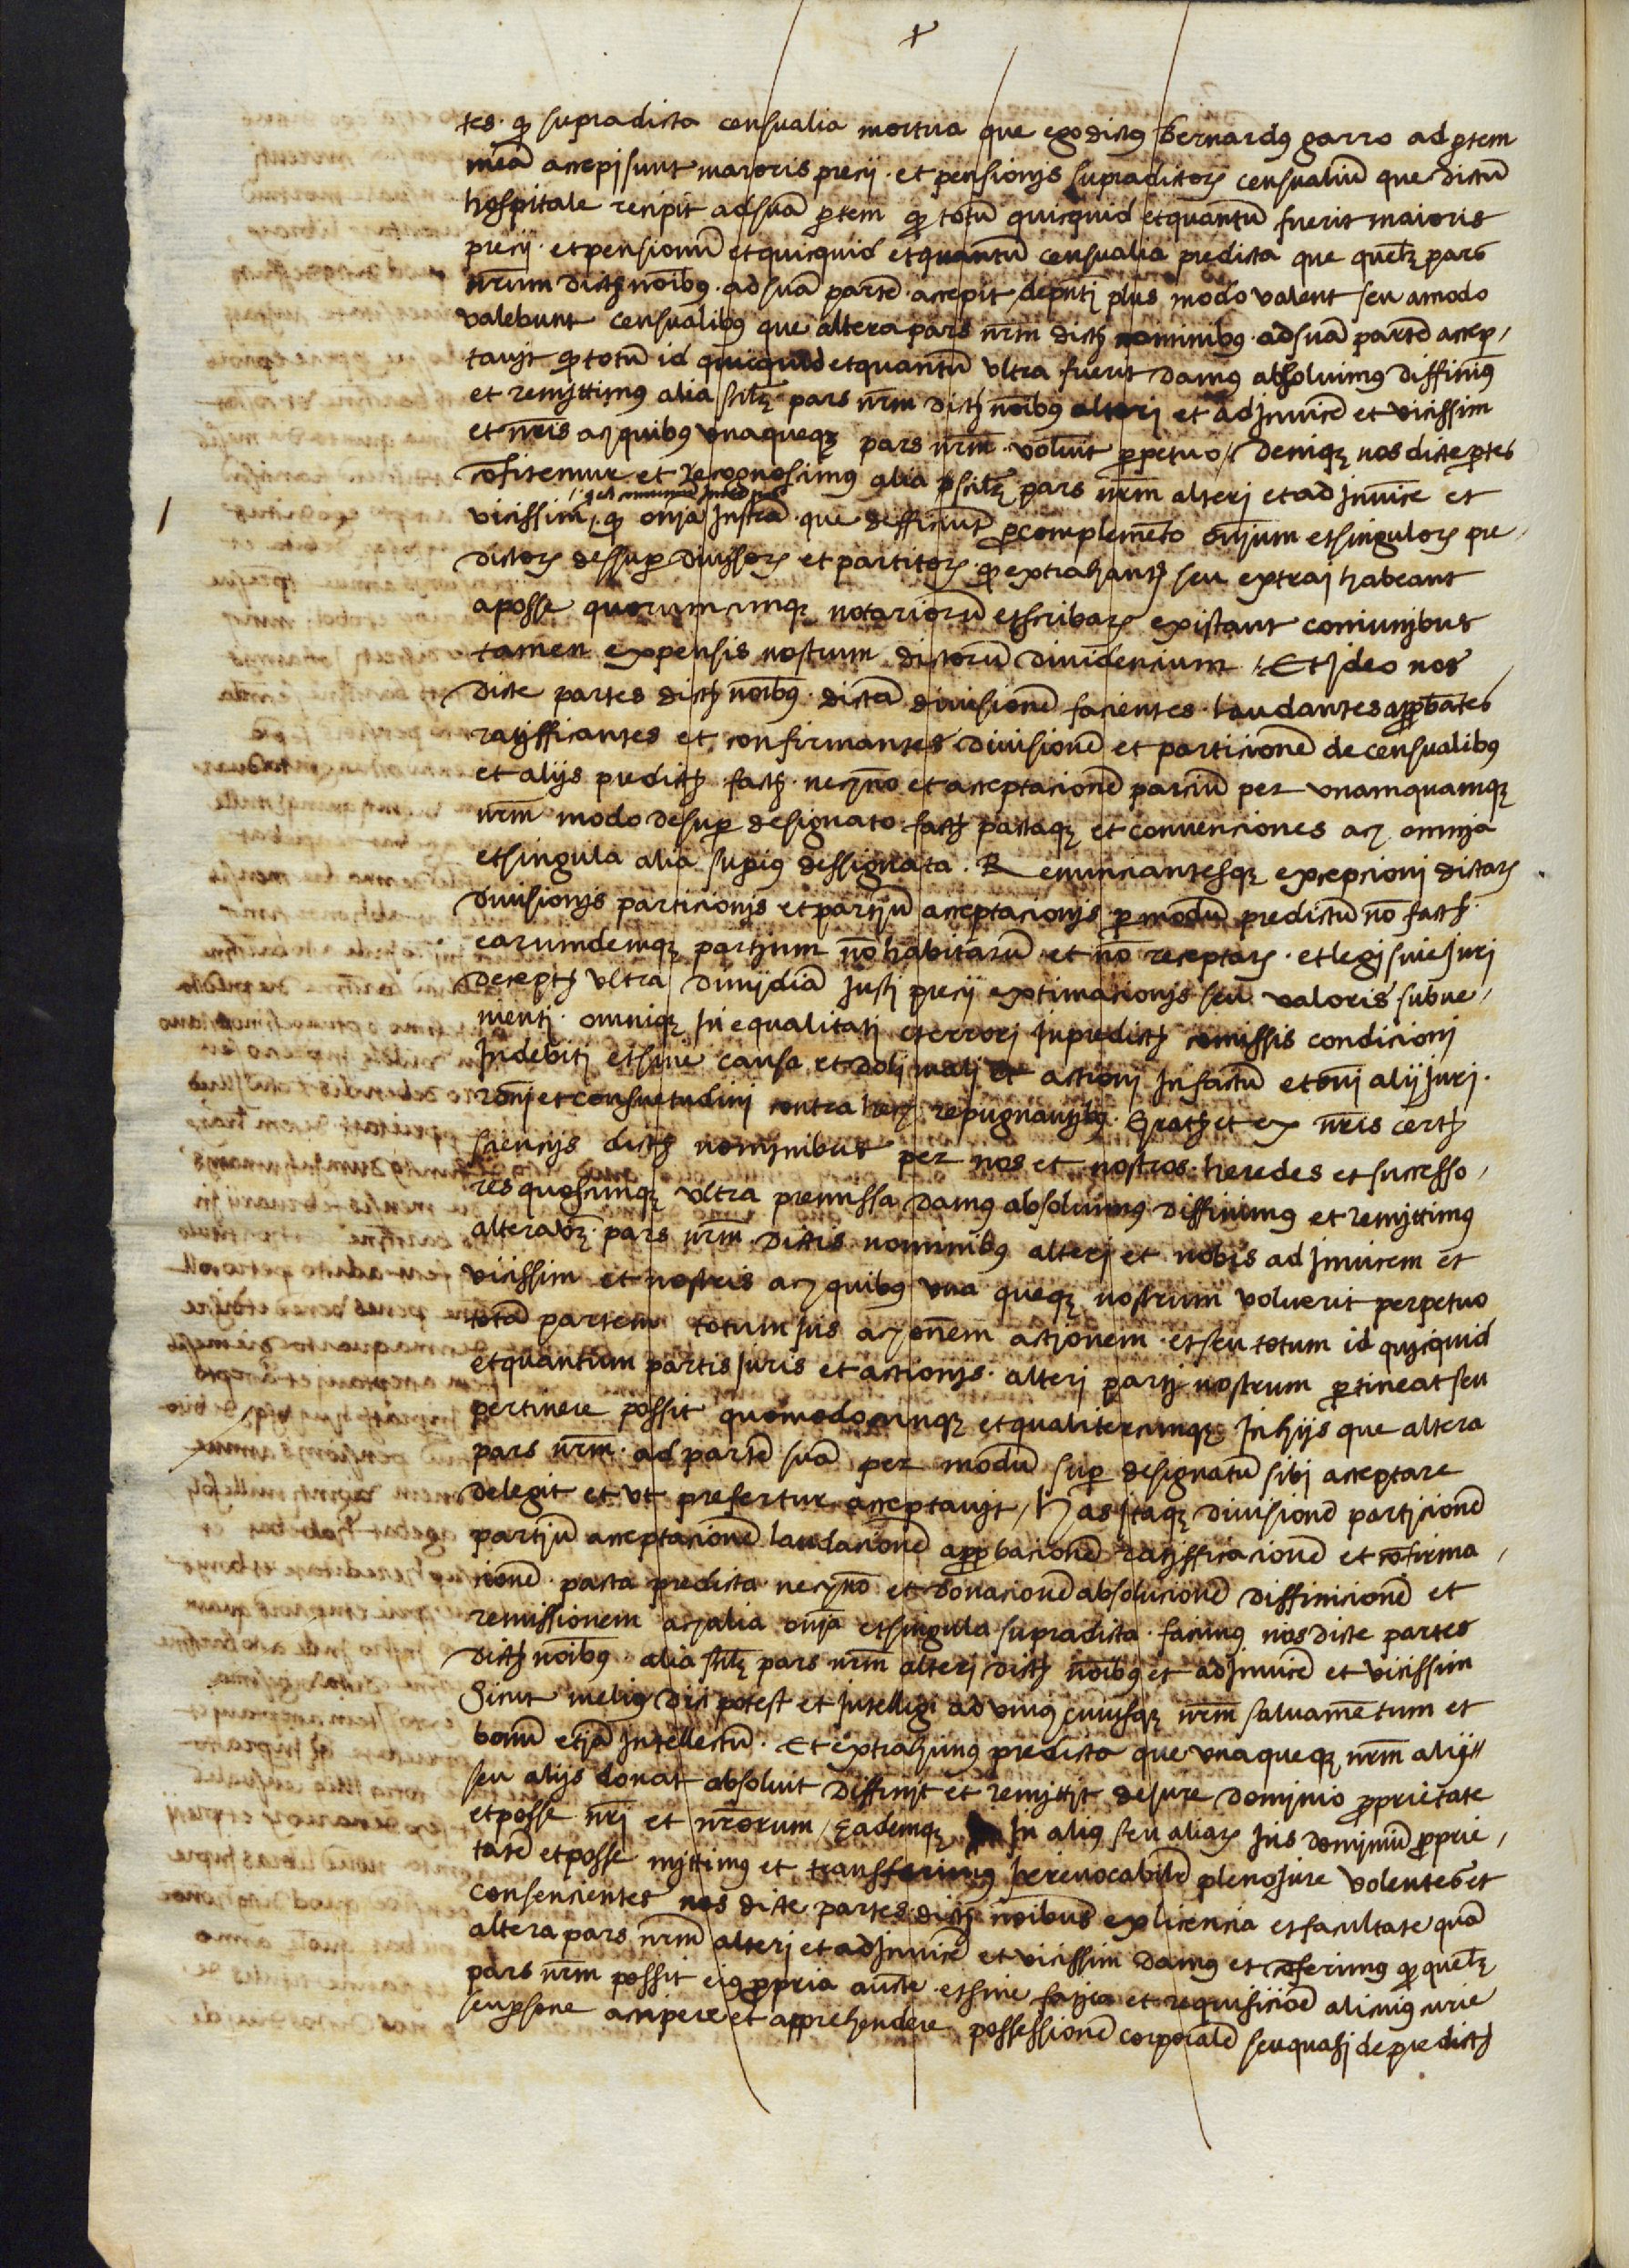 tes. ꝙ supradicta censualia mortua que ego dictꝰ Bernardꝰ garro ad ꝑtem
meā accepi sunt maioris precij. et pensionis supradictoꝝ censualiū que dictū
hospitale recipit ad suā ꝑtem ꝙ totū quicquid et quantū fuerit maioris
precij. et pensionū et quicquid et quantū censualia predicta que quelꝫ pars
nr̄um dictꝭ noībꝰ. ad suā partē accepit de pñti plus modo valent seu amodo
valebunt censualibꝰ que altera pars nr̄m dictꝭ nominibꝰ. ad suā partē accep/
tauit ꝙ totū id quicquid et quantū vltra fuerit damꝰ absoluimꝰ diffinimꝰ
et remittimꝰ alia scilꝫ pars nr̄m dictꝭ noībꝰ alteri et ad Inuicē et vicissim
et nr̄is ac quibꝰ vnaqueqꝫ pars nr̄m. voluit ꝑpetuo / Deniqꝫ nos dicte ꝑtes
cōfitemur et Recognoscimꝰ alia scilꝫ pars nr̄m alteri et ad Inuicē et
vicissim / ꝙ onīa Instra que defficiūt ꝓ complemēto onīum et singuloꝝ pre/
dictoꝝ dessuꝑ diuissoꝝ et partitoꝝ ꝙ extrahantꝭ seu extrai habeant
a posse quorumcumqꝫ notarioruꝫ et scribaꝝ existant comunibus
tamen expensis nostrum dictorū diuidencium. Et Ideo nos
dicte partes dictꝭ noībꝰ. dictā diuisionē facientes. laudantes apꝓbātes
ratifficantes et confirmantes diuisionē et particionē de censualibꝰ
et alijs predictꝭ factꝭ. necnō et acceptacionē parciū per vnamquamqꝫ
nr̄m modo desuꝑ designato factꝭ pactaqꝫ et conuenciones ac omnia
et singula alia supiꝰ dessignata. Renunciantesqꝫ excepcioni dictaꝝ
diuisionis particionis et partiū acceptacionis ꝑ modū predictū nō factꝭ.
earumdemqꝫ partium nō habitarū et nō receptaꝝ. et legi siue Juri
deceptꝭ vltra dimidiā Justi precij extimacionis seu valoris subue/
nienti. omniqꝫ In equalitati et errori In predictꝭ comissis condicioni
Indebiti et sine causa et doli mali et actioni In factū et oni alij Juri.
roni et consuetudini contra hec repugnantibꝰ. Gratꝭ et ex nr̄is certꝭ
sciencijs dictꝭ nominibus per nos et nostros. heredes et successo/
res quoscumqꝫ vltra premissa damꝰ absoluimꝰ diffinimꝰ et remittimꝰ
altera vꝫ. pars nr̄m dictis nominibꝰ alteri et nobis ad Inuicem et
vicissim et nostris ac quibꝰ vna queqꝫ nostrum voluerit perpetuo
totā partem totum Jus ac onēm actionem. et seu totum id quicquid
et quantum partis Juris et actionis. alteri parti nostrum ꝑtineat seu
pertinere possit quomodocumqꝫ et qualitercumqꝫ In hijs que altera
pars nr̄m. ad partē suā per modū suꝑ designatū sibi acceptare
delegit et vt prefertur acceptauit / Has Itaqꝫ diuisionē particionē
partiū acceptacionē laudacionē apꝓbacionē ratifficacionē et cōfirma/
cionē. pacta predicta. necnō et donacionē absolucionē diffinicionē et
remissionem ac alia onīa et singula supradicta. facimꝰ nos dicte partes
dictꝭ noībꝰ. alia scilꝫ pars nr̄m alteri dictꝭ noībꝰ et ad Inuicē et vicissim
Sicut meliꝰ dici potest et Intelligi ad vniꝰ cuiusqꝫ nr̄m saluamētum et
bonū etiā Intellectū. Et extrahimꝰ predicta que vnaqueqꝫ nr̄m alij
seu alijs donat absoluit diffinit et remittit de Jure dominio ꝓprietate
et posse nr̄i et nr̄orum / Eademqꝫ In aliꝰ seu aliaꝝ Jus dominiū ꝓprie/
tatē et posse mittimꝰ et transferimꝰ Irreuocabilr̄ pleno Jure volentes et
consencientes nos dicte partes dictꝭ noībus ex licencia et facultate quā
altera pars nr̄m alteri et ad Inuicē et vicissim damꝰ et cōferimꝰ ꝙ quelꝫ
pars nr̄m possit eiꝰ ꝓpria aucte. et sine fatica et requisicioē alicuiꝰ curie
seu ꝑsone accipere et apprehendere possessionē corporalē seu quasi de predictꝭ